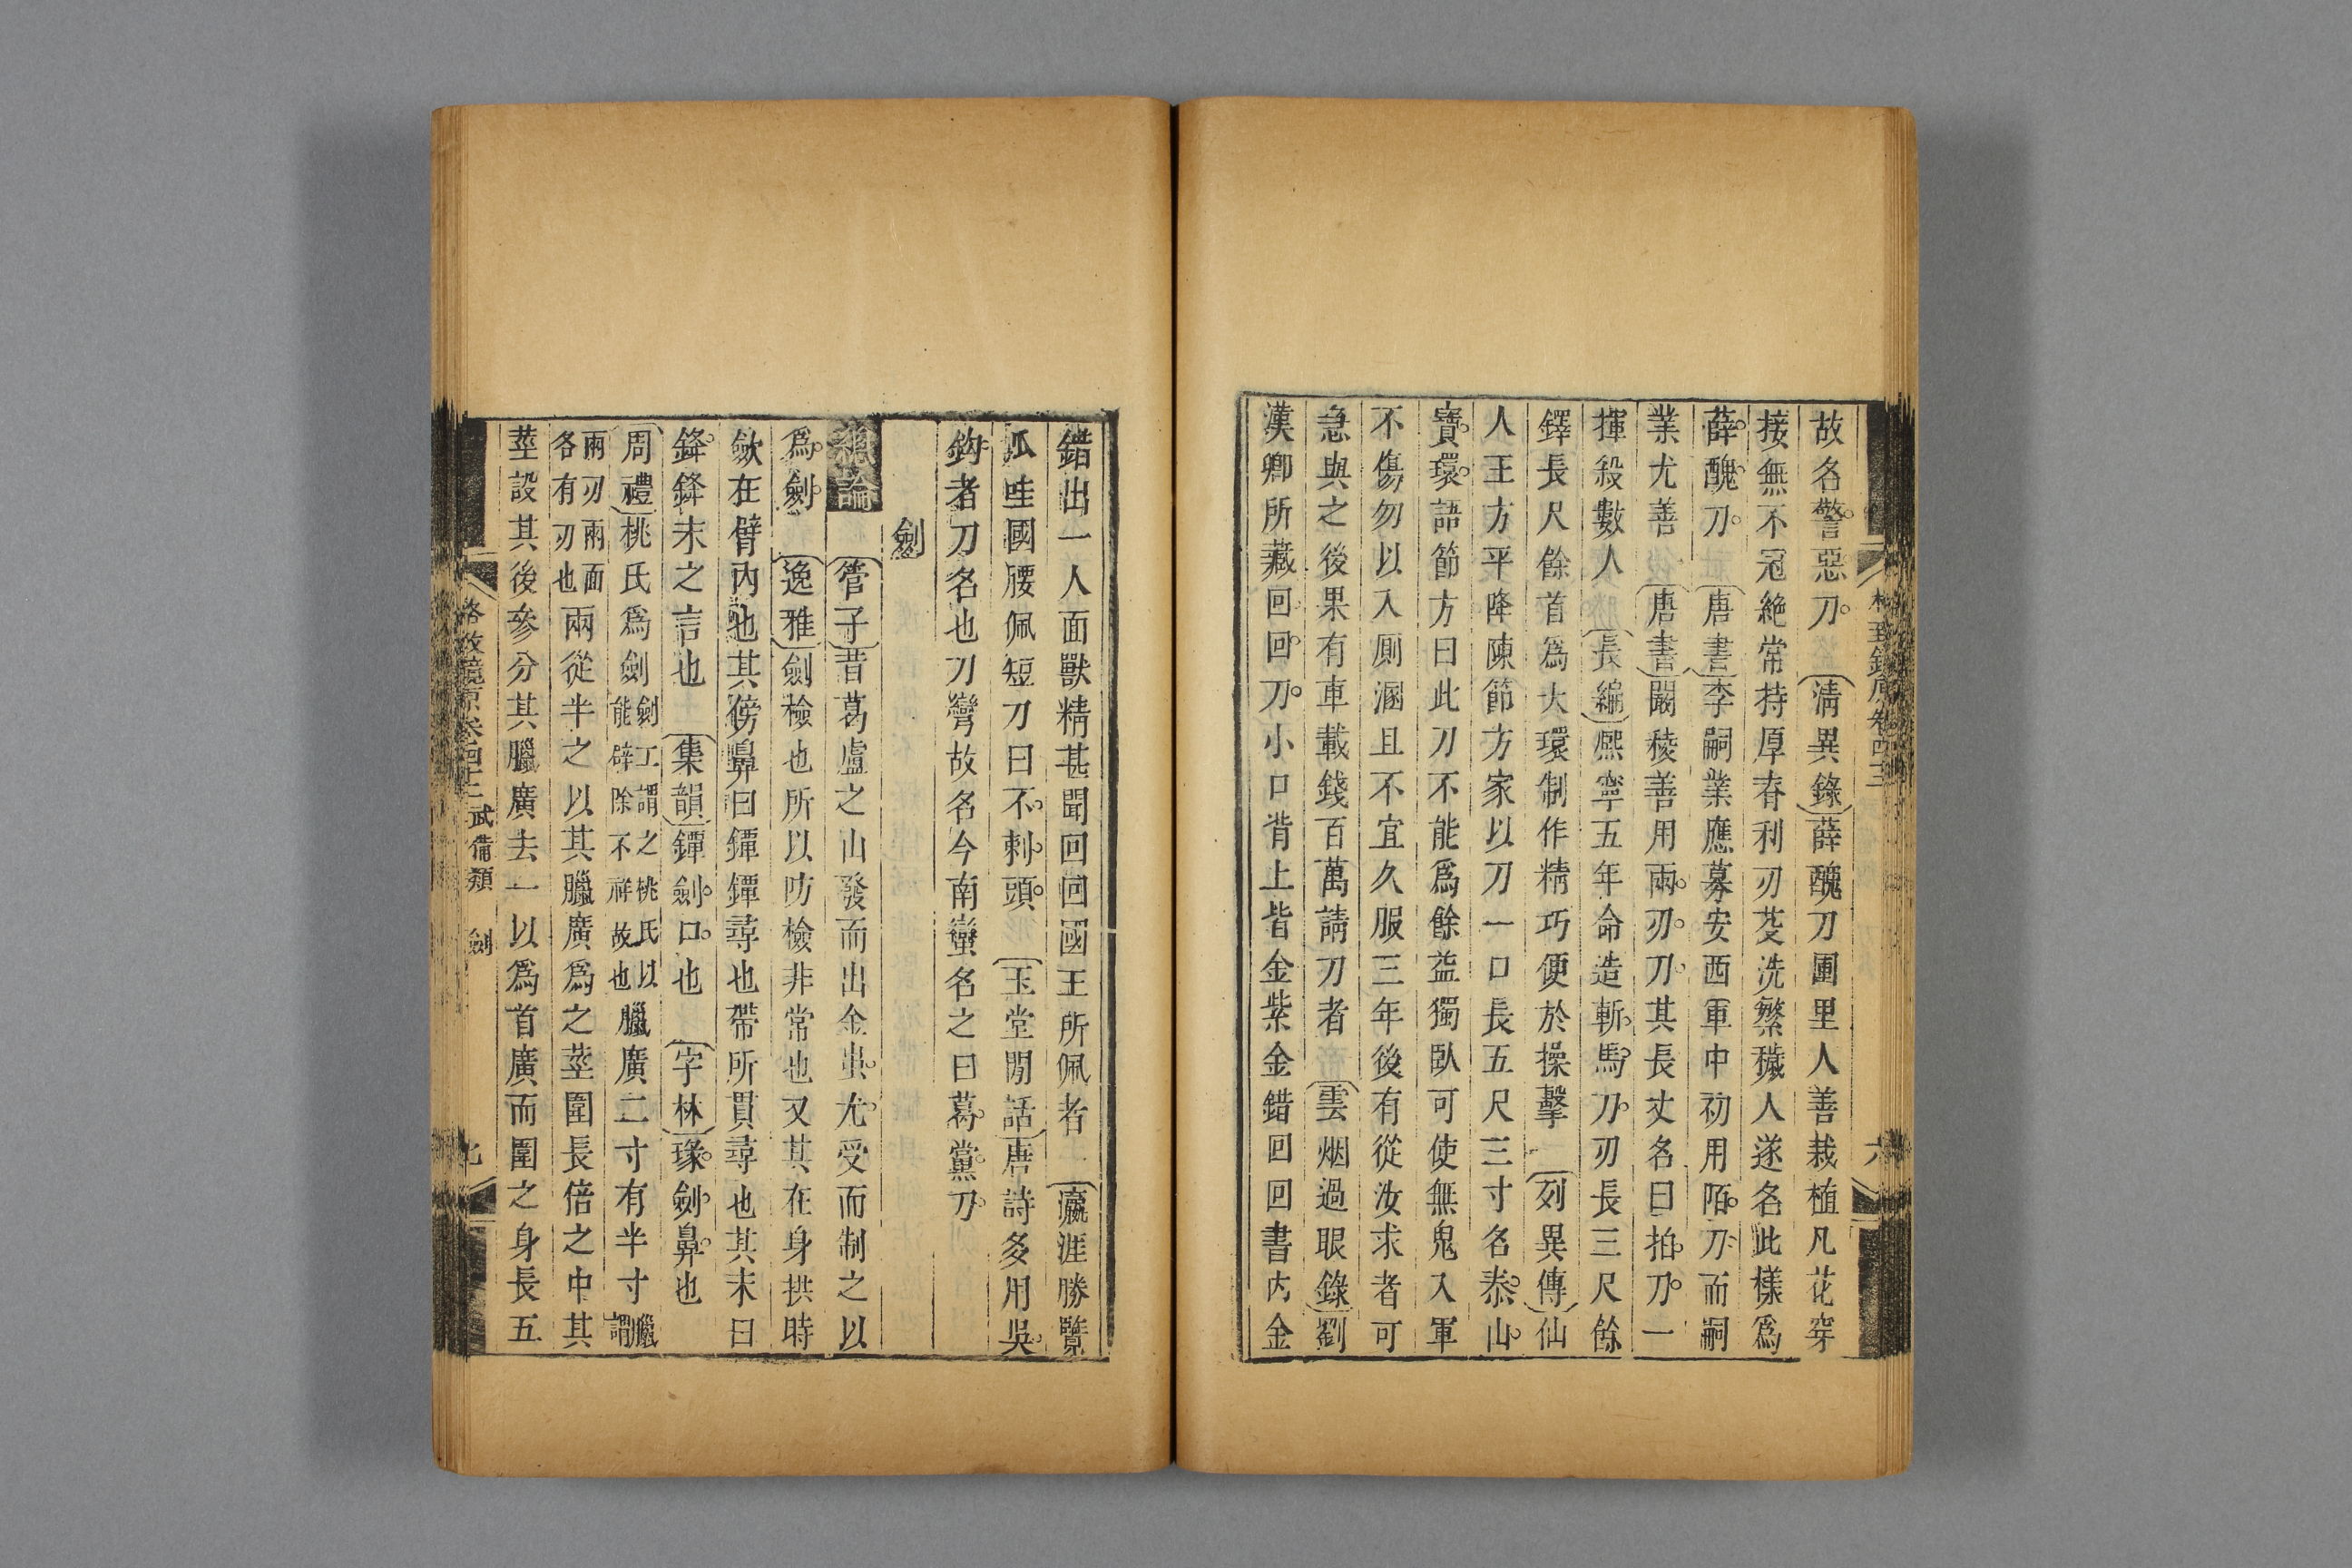 故名警惡刀 清異錄薛醜刀圃里人善栽植凡花穿
接無不冠絶常持厚脊利刃芟洗繁穢人遂名此樣爲
薛醜刀 唐書李嗣業應募安西軍中初用陌刀而嗣
業尤善 唐書闞稜善用兩刃刀其長丈名曰拍刀一
揮殺數人 長編熈寧五年命造斬馬刀刃長三尺餘
鐔長尺餘首爲大環制作精巧便於操擊 列異傳仙
人王方平降陳節方家以刀一口長五尺三寸名泰山
寶環語節方曰此刀不能爲餘益獨臥可使無鬼入軍
不傷勿以入厠溷且不宜久服三年後有從汝求者可
急與之後果有車載錢百萬請刀者 雲烟過眼錄劉
漢卿所藏回回刀小口背上皆金紫金錯回回書内金
錯出一人面獸精甚聞回回國王所佩者 瀛涯勝覽
爪哇國腰佩短刀曰不剌頭 玉堂閒話唐詩多用吳
鉤者刀名也刀彎故名今南蠻名之曰葛黨刀
劍
總論 管子昔葛盧之山發而出金蚩尤受而制之以
爲劍 逸雅劍檢也所以防檢非常也又其在身拱時
斂在臂内也其傍鼻曰鐔鐔尋也帶所貫尋也其末曰
鋒鋒末之言也 集韻鐔劍口也 字林璏劍鼻也
周禮桃氏爲劍劍工謂之桃氏以能辟除不祥故也臘廣二寸有半寸臘謂
兩刃兩面各有刃也兩從半之以其臘廣爲之莖圍長倍之中其
莖設其後參分其臘廣去一以爲首廣而圍之身長五
格致鏡原卷四十二 武備類 劍 七